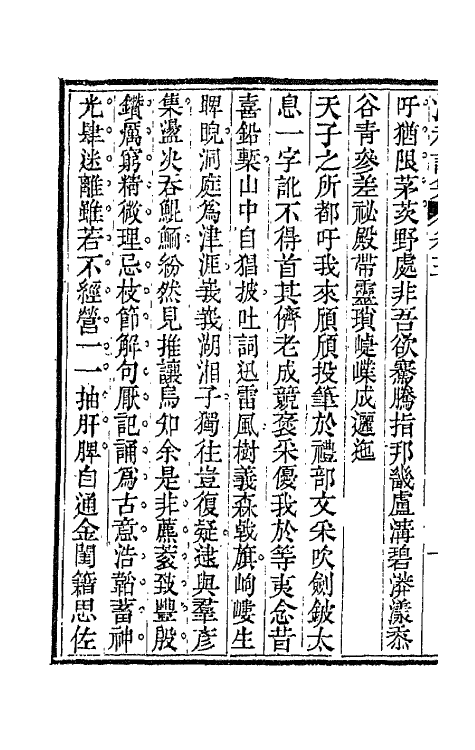 吁猶限茅茨野處非吾欲騫騰指邦畿盧溝碧漭漾黍
谷青參差祕殿帶靈瑣崨嶫成邐迤
天子之所都吁我來頎頎投筆於禮部文采吹劍鈹太
息一字訛不得首其儕老成競褒采優我於等夷念昔
喜鉛槧山中自猖披吐詞迅雷風樹義森戟旗岣嶁生
睥睨洞庭為津涯義義湖湘子獨往豈復疑逮與羣彥
集盪決吞鯤鮞紛然見推讓烏知余是非薦菱致豐殷
鑽厲窮精微理忌枝節解句厭記誦為古意浩韜蓄神
光肆迷離雖若不經營一一抽肝脾自通金閨籍思佐